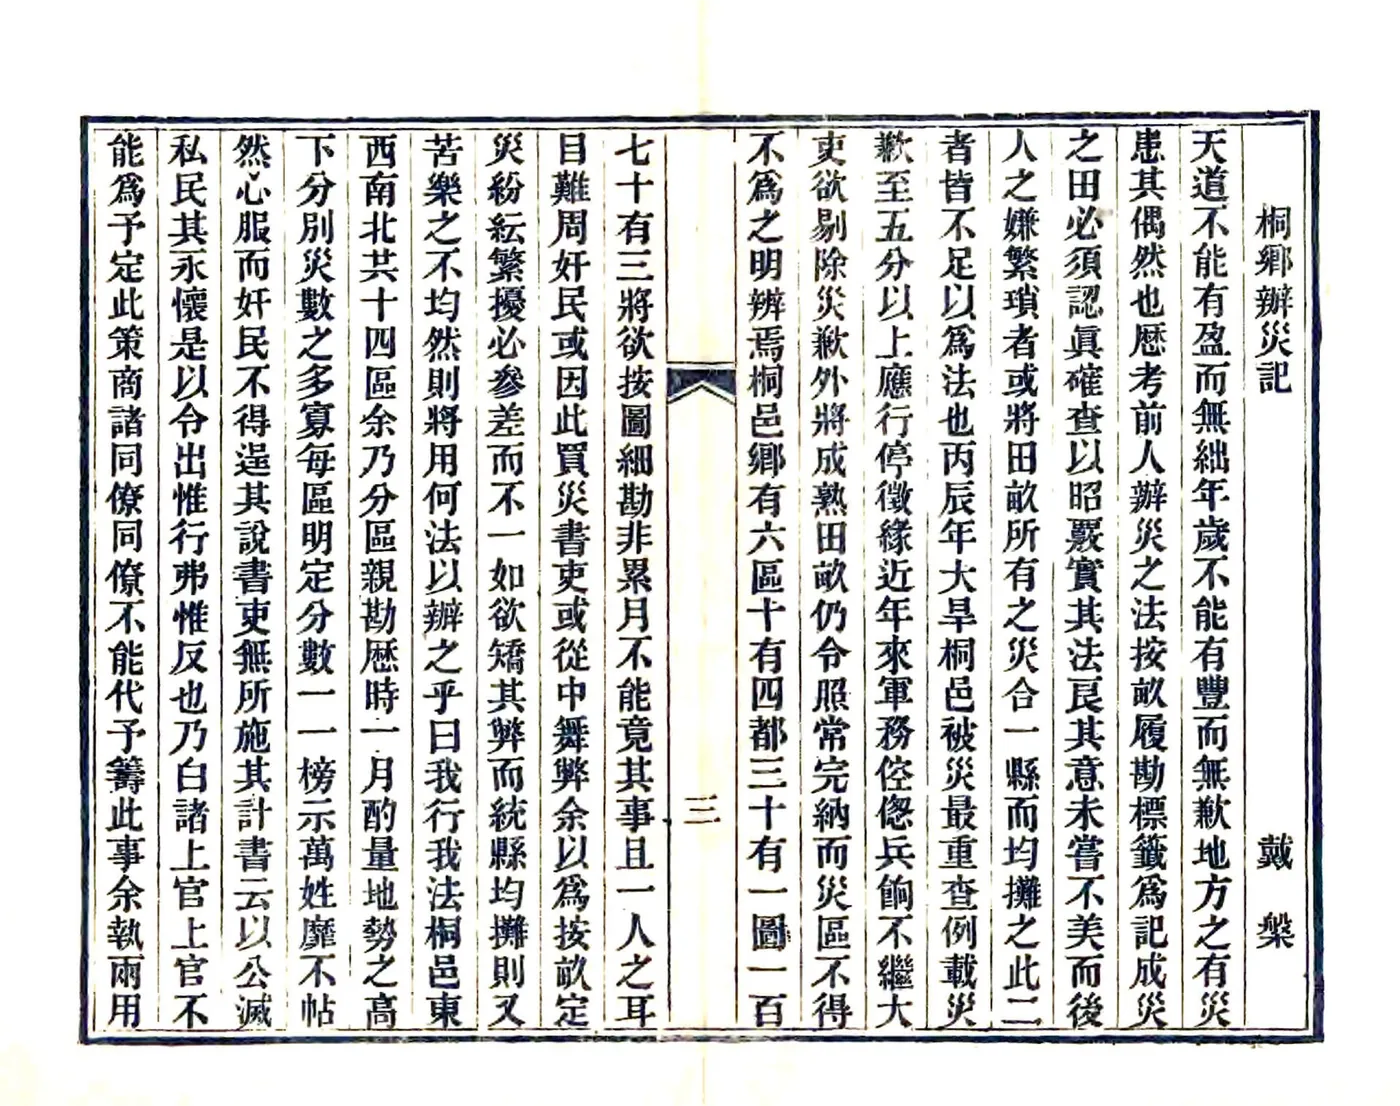 桐鄉辦災記　戴槃
天道不能有盈而無絀年歲不能有豐而無歉地方之有災
患其偶然也歷考前人辦災之法按畝履勘標籤為記成災
之田必須認眞確查以昭覈實其法良其意未嘗不美而後
人之嫌繁瑣者或將田畝所有之災合一縣而均攤之此二
者皆不足以為法也丙辰年大旱桐邑被災最重查例載災
歉至五分以上應行停徵緣近年來軍務倥偬兵餉不繼大
吏欲剔除災歉外將成熟田畝仍令照常完納而災區不得
不為之明辨焉桐邑鄉有六區十有四都三十有一圖一百
三
七十有三將欲按圖細勘非累月不能竟其事且一人之耳
目難周奸民或因此買災書吏或從中舞弊余以為按畝定
災紛紜繁擾必參差而不一如欲矯其弊而統縣均攤則又
苦樂之不均然則將用何法以辦之乎曰我行我法桐邑東
西南北共十四區余乃分區親勘歷時一月酌量地勢之高
下分別災數之多寡每區明定分數一一榜示萬姓靡不帖
然心服而奸民不得逞其說書吏無所施其計書云以公滅
私民其永懷是以令出惟行弗惟反也乃白諸上官上官不
能為予定此策商諸同僚同僚不能代予籌此事余執兩用